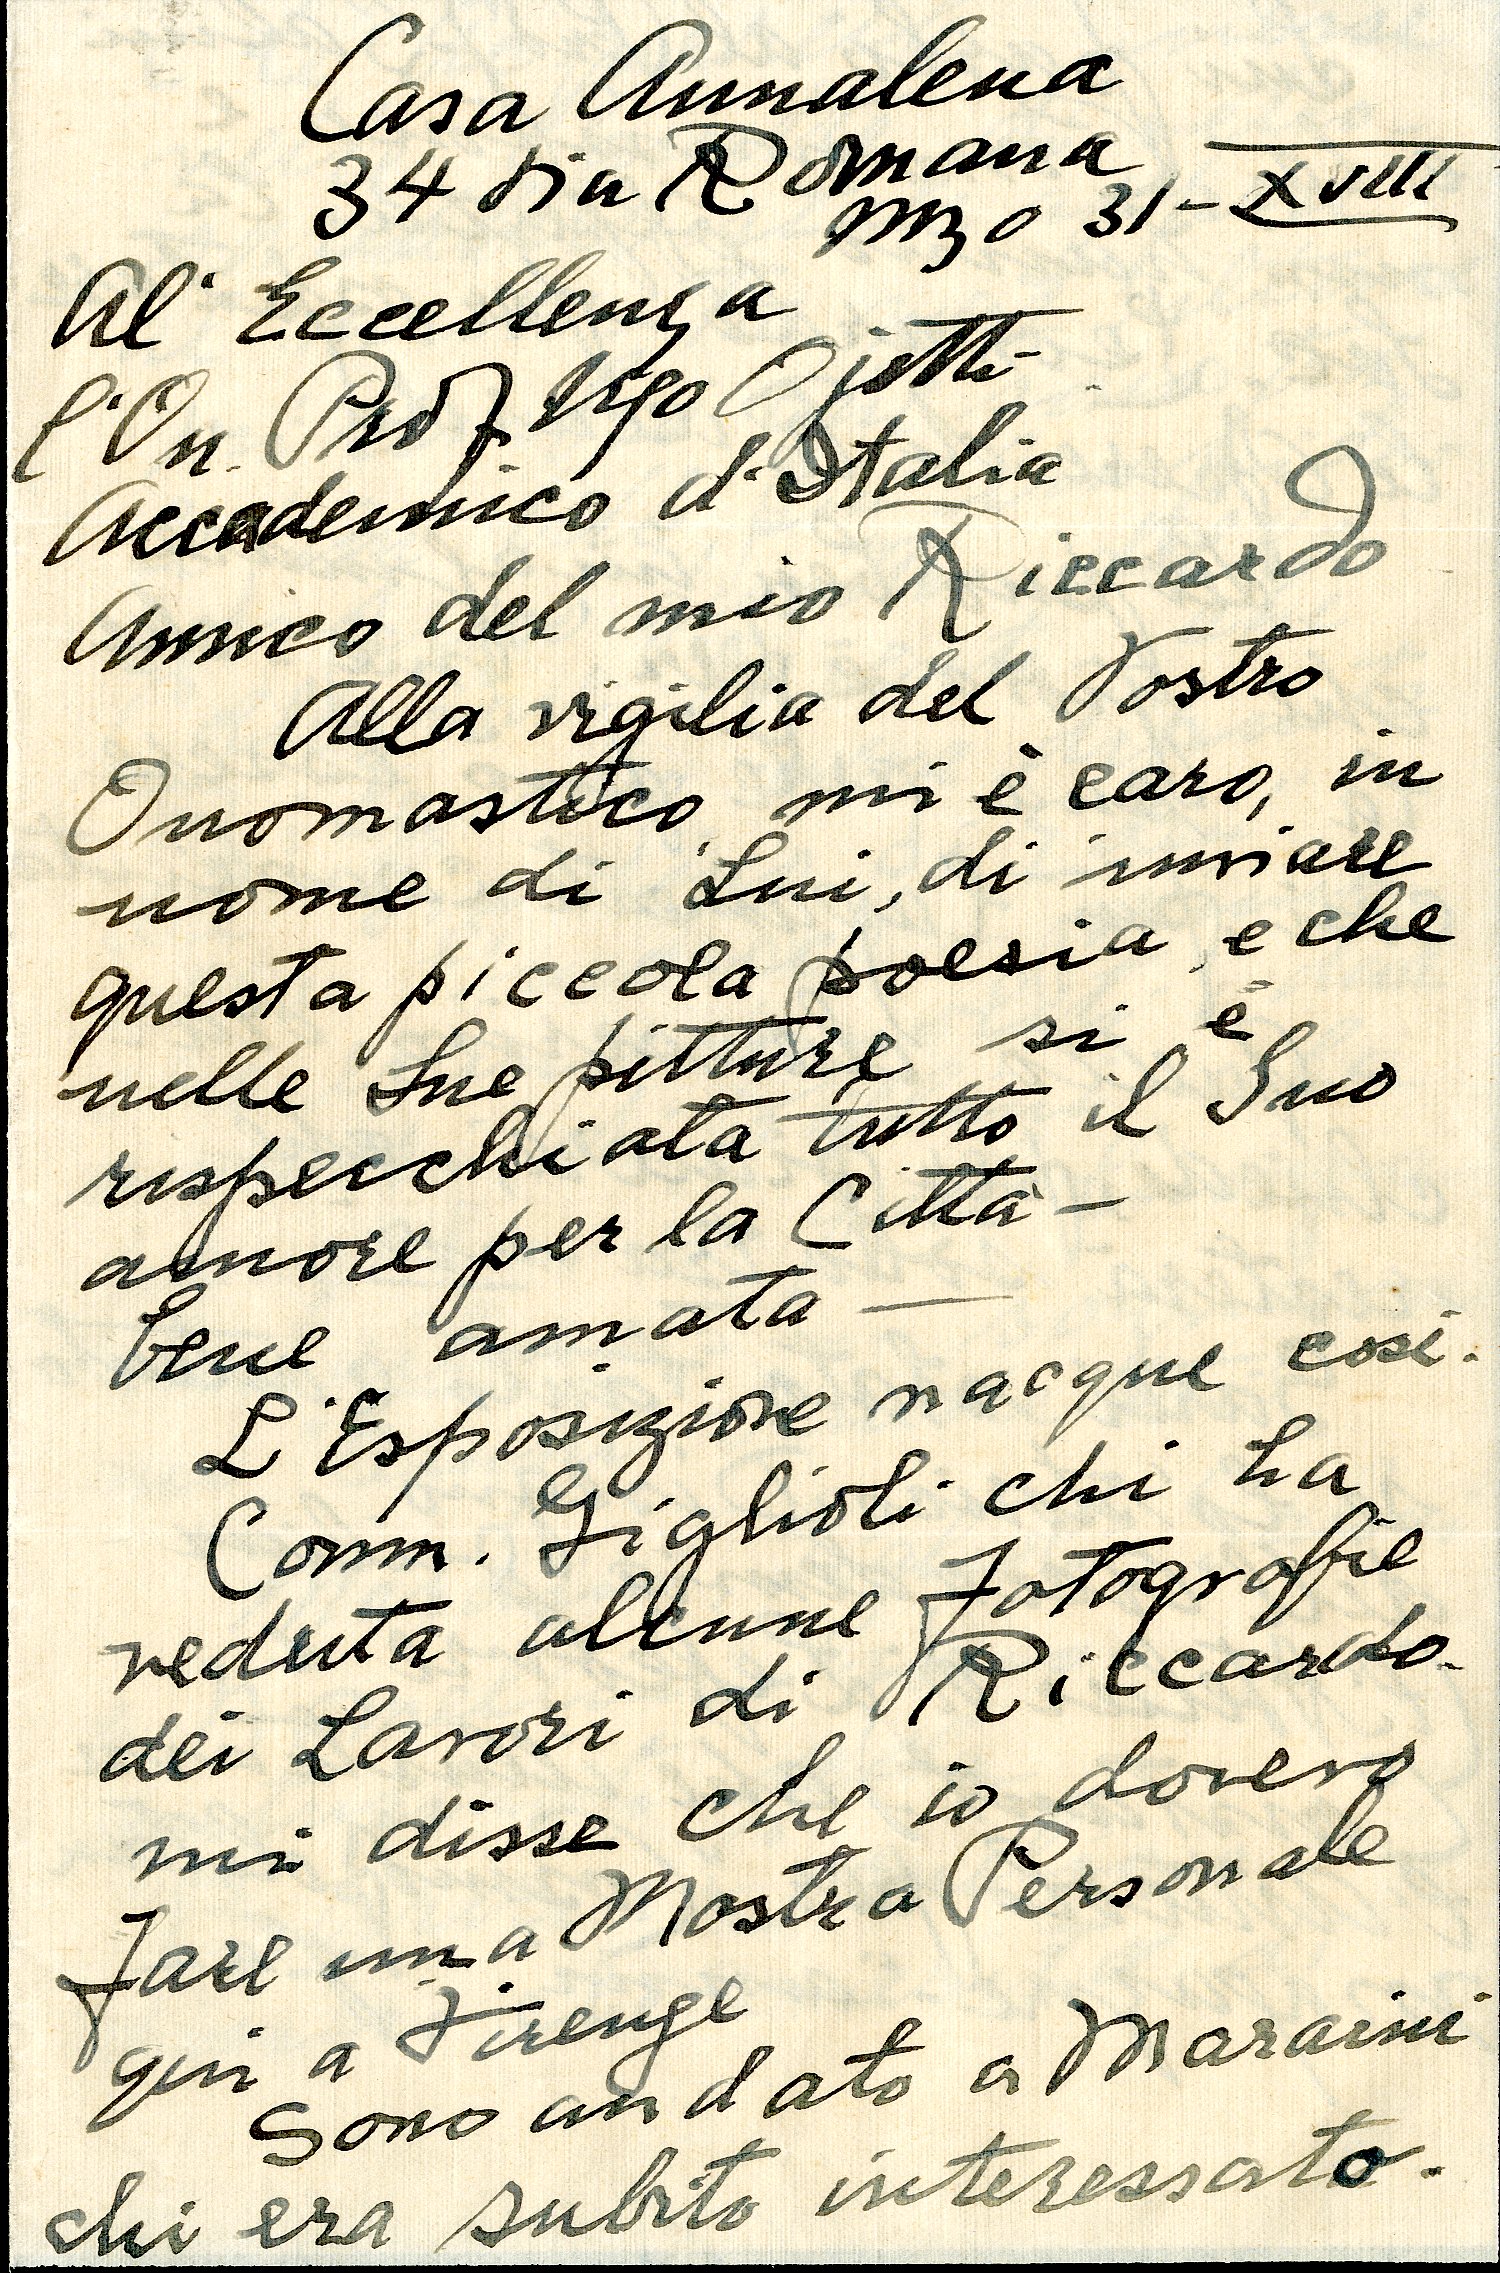 Casa Annalena
34 via Romana
mzo 31 - XVIII
Al' Eccellenza
l'On. Prof Ugo Ojetti
Accademico d'Italia
Amico del mio Riccardo
Alla vigilia del Vostro
Onomastico mi è caro, in
nome di Lui, di inviare
questa piccola poesia, e che
nelle Sue pitture si è
rispecchiata tutto il Suo
amore per la Città -
bene amata —
L'Esposizione nacque così.
Comm. Giglioli chi ha
veduta alcune Fotografie
dei Lavori di Riccardo.
mi disse che io dovevo
fare una Mostra Personale
qui a Firenze
Sono andato a Maraini
chi era subito interessato.